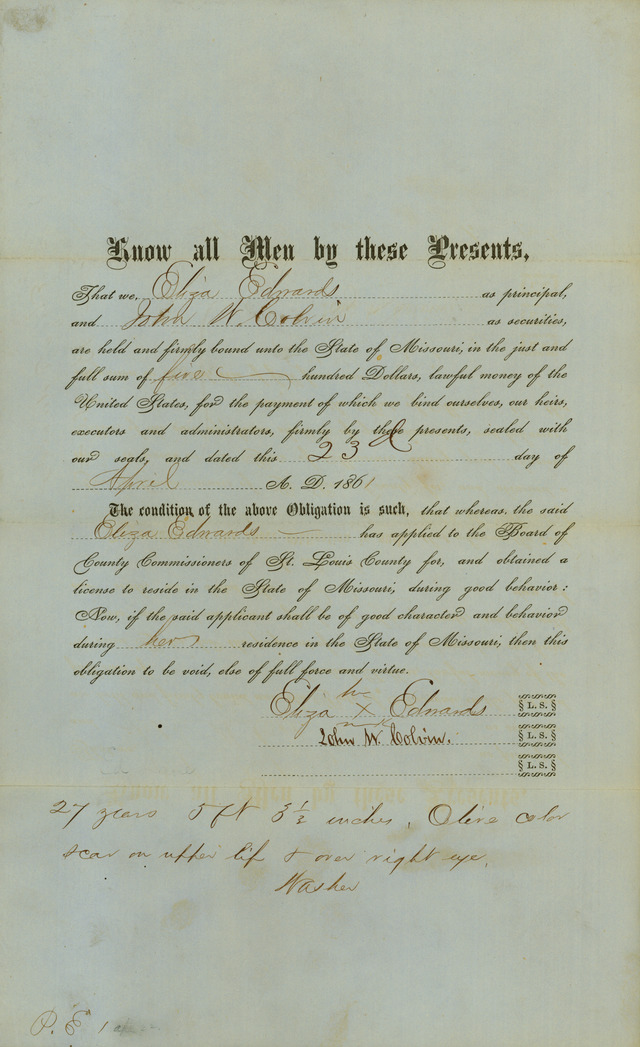 Know all Men by these Presents,
That we, Eliza Edwards as principal,
and John W. Colvin as securities,
are held and firmly bound unto the State of Missouri, in the just and
full sum of five hundred Dollars, lawful money of the
United States, for the payment of which we bind ourselves, our heirs,
executors and administrators, firmly by these presents, sealed with
our seals, and dated this 23 day of
April A. D. 1861
The condition of the above Obligation is such, that whereas, the said
Eliza Edwards has applied to the Board of
County Commissioners of St. Louis County for, and obtained a
license to reside in the State of Missouri, during good behavior:
Now, if the said applicant shall be of good character and behavior
during her residence in the State of Missouri, then this
obligation to be void, else of full force and virtue.
her
Eliza X Edwards L. S.
mark
John W. Colvin. L. S.
L. S.
27 years 5 ft 3 1/2 inches, Olive color
scar on upper lip & over right eye,
Washer
P. E